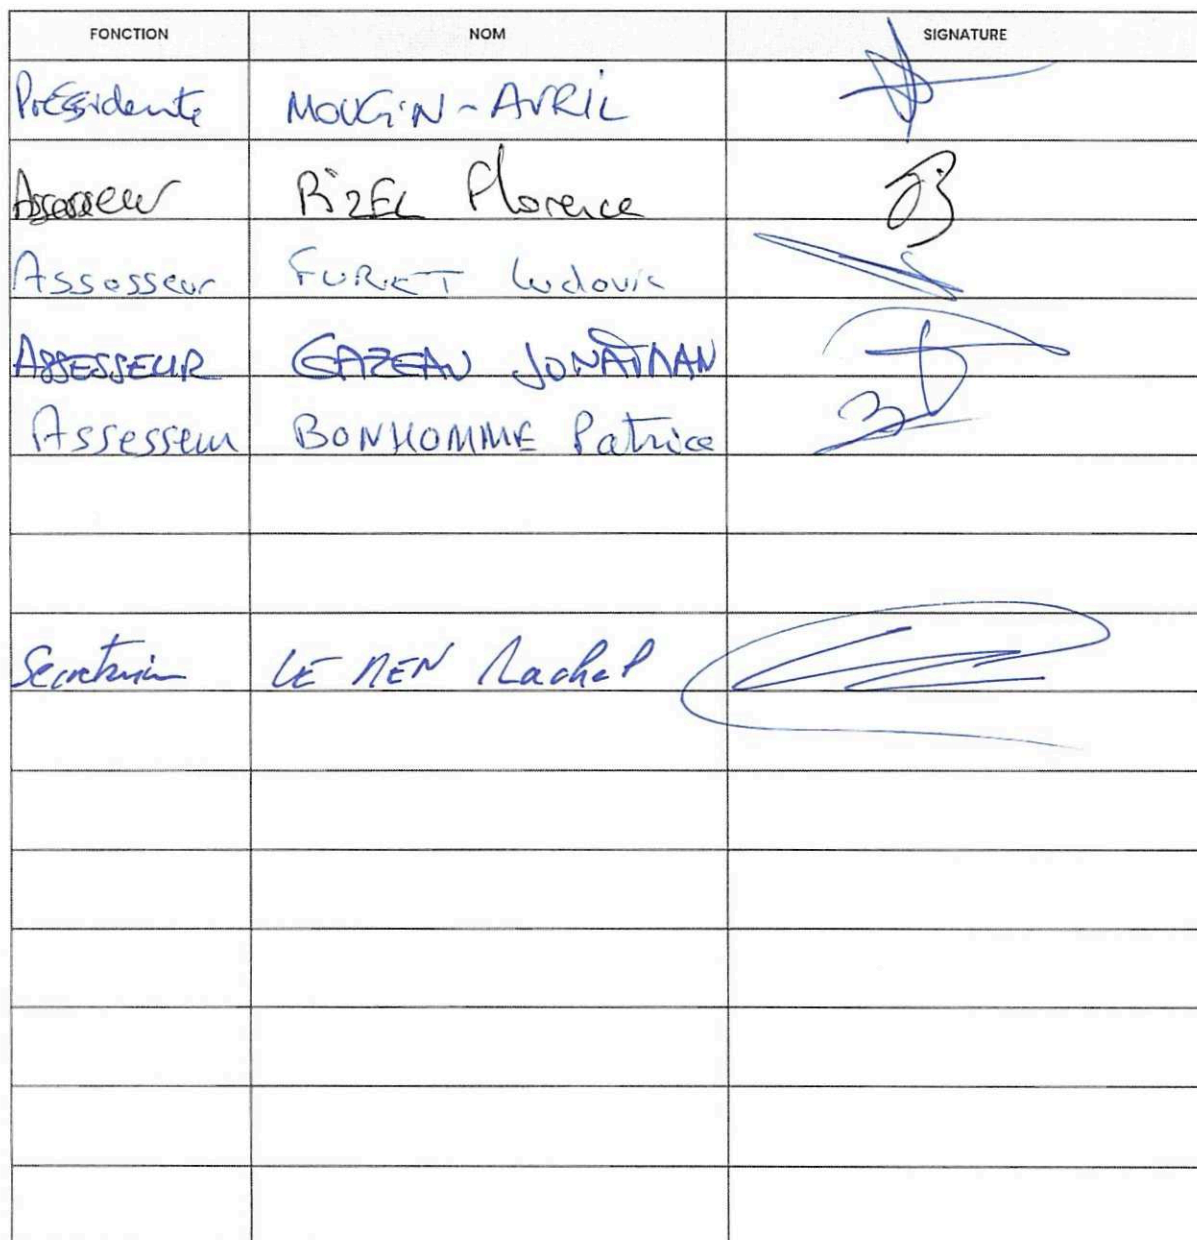 FONCTION NOM SIGNATURE
Présidente MOUGIN-AVRIL
Assesseur BIZEL Florence
Assesseur FURET Ludovic
ASSESSEUR GAZEAU JONATHAN
Assesseur BONHOMME Patrice
Secretaire LE MEN Rachel